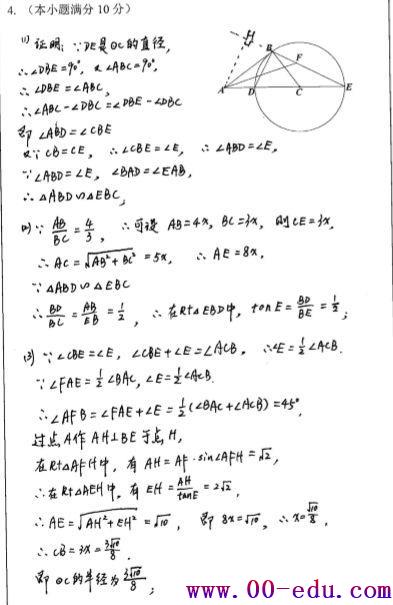 4. （本小题满分 10 分）
H
B
F
A
D
C
E
(1) 证明：∵DE是⊙C的直径，
∴∠DBE=90°，又∠ABC=90°，
∴∠DBE=∠ABC，
∴∠ABC-∠DBC=∠DBE-∠DBC
即∠ABD=∠CBE
又∵CB=CE，∴∠CBE=∠E，∴∠ABD=∠E，
∵∠ABD=∠E，∠BAD=∠EAB，
∴△ABD∽△EBC，
(2)∵AB/BC=4/3，∴可设 AB=4x，BC=3x，则CE=3x，
∴AC=√(AB²+BC²)=5x，∴AE=8x，
∵△ABD∽△EBC
∴BD/BC=AB/EB=1/2，∴在Rt△EBD中，tanE=BD/BE=1/2；
(3)∵∠CBE=∠E，∠CBE+∠E=∠ACB，∴∠E=1/2∠ACB.
∵∠FAE=1/2∠BAC，∠E=1/2∠ACB.
∴∠AFB=∠FAE+∠E=1/2(∠BAC+∠ACB)=45°，
过点A作AH⊥BE于点H，
在Rt△AFH中，有 AH=AF·sin∠AFH=√2，
∴在Rt△AEH中，有 EH=AH/tanE=2√2，
∴AE=√(AH²+EH²)=√10，即 8x=√10，∴x=√10/8，
∴CB=3x=3√10/8.
即⊙C的半径为3√10/8；
www.00-edu.com